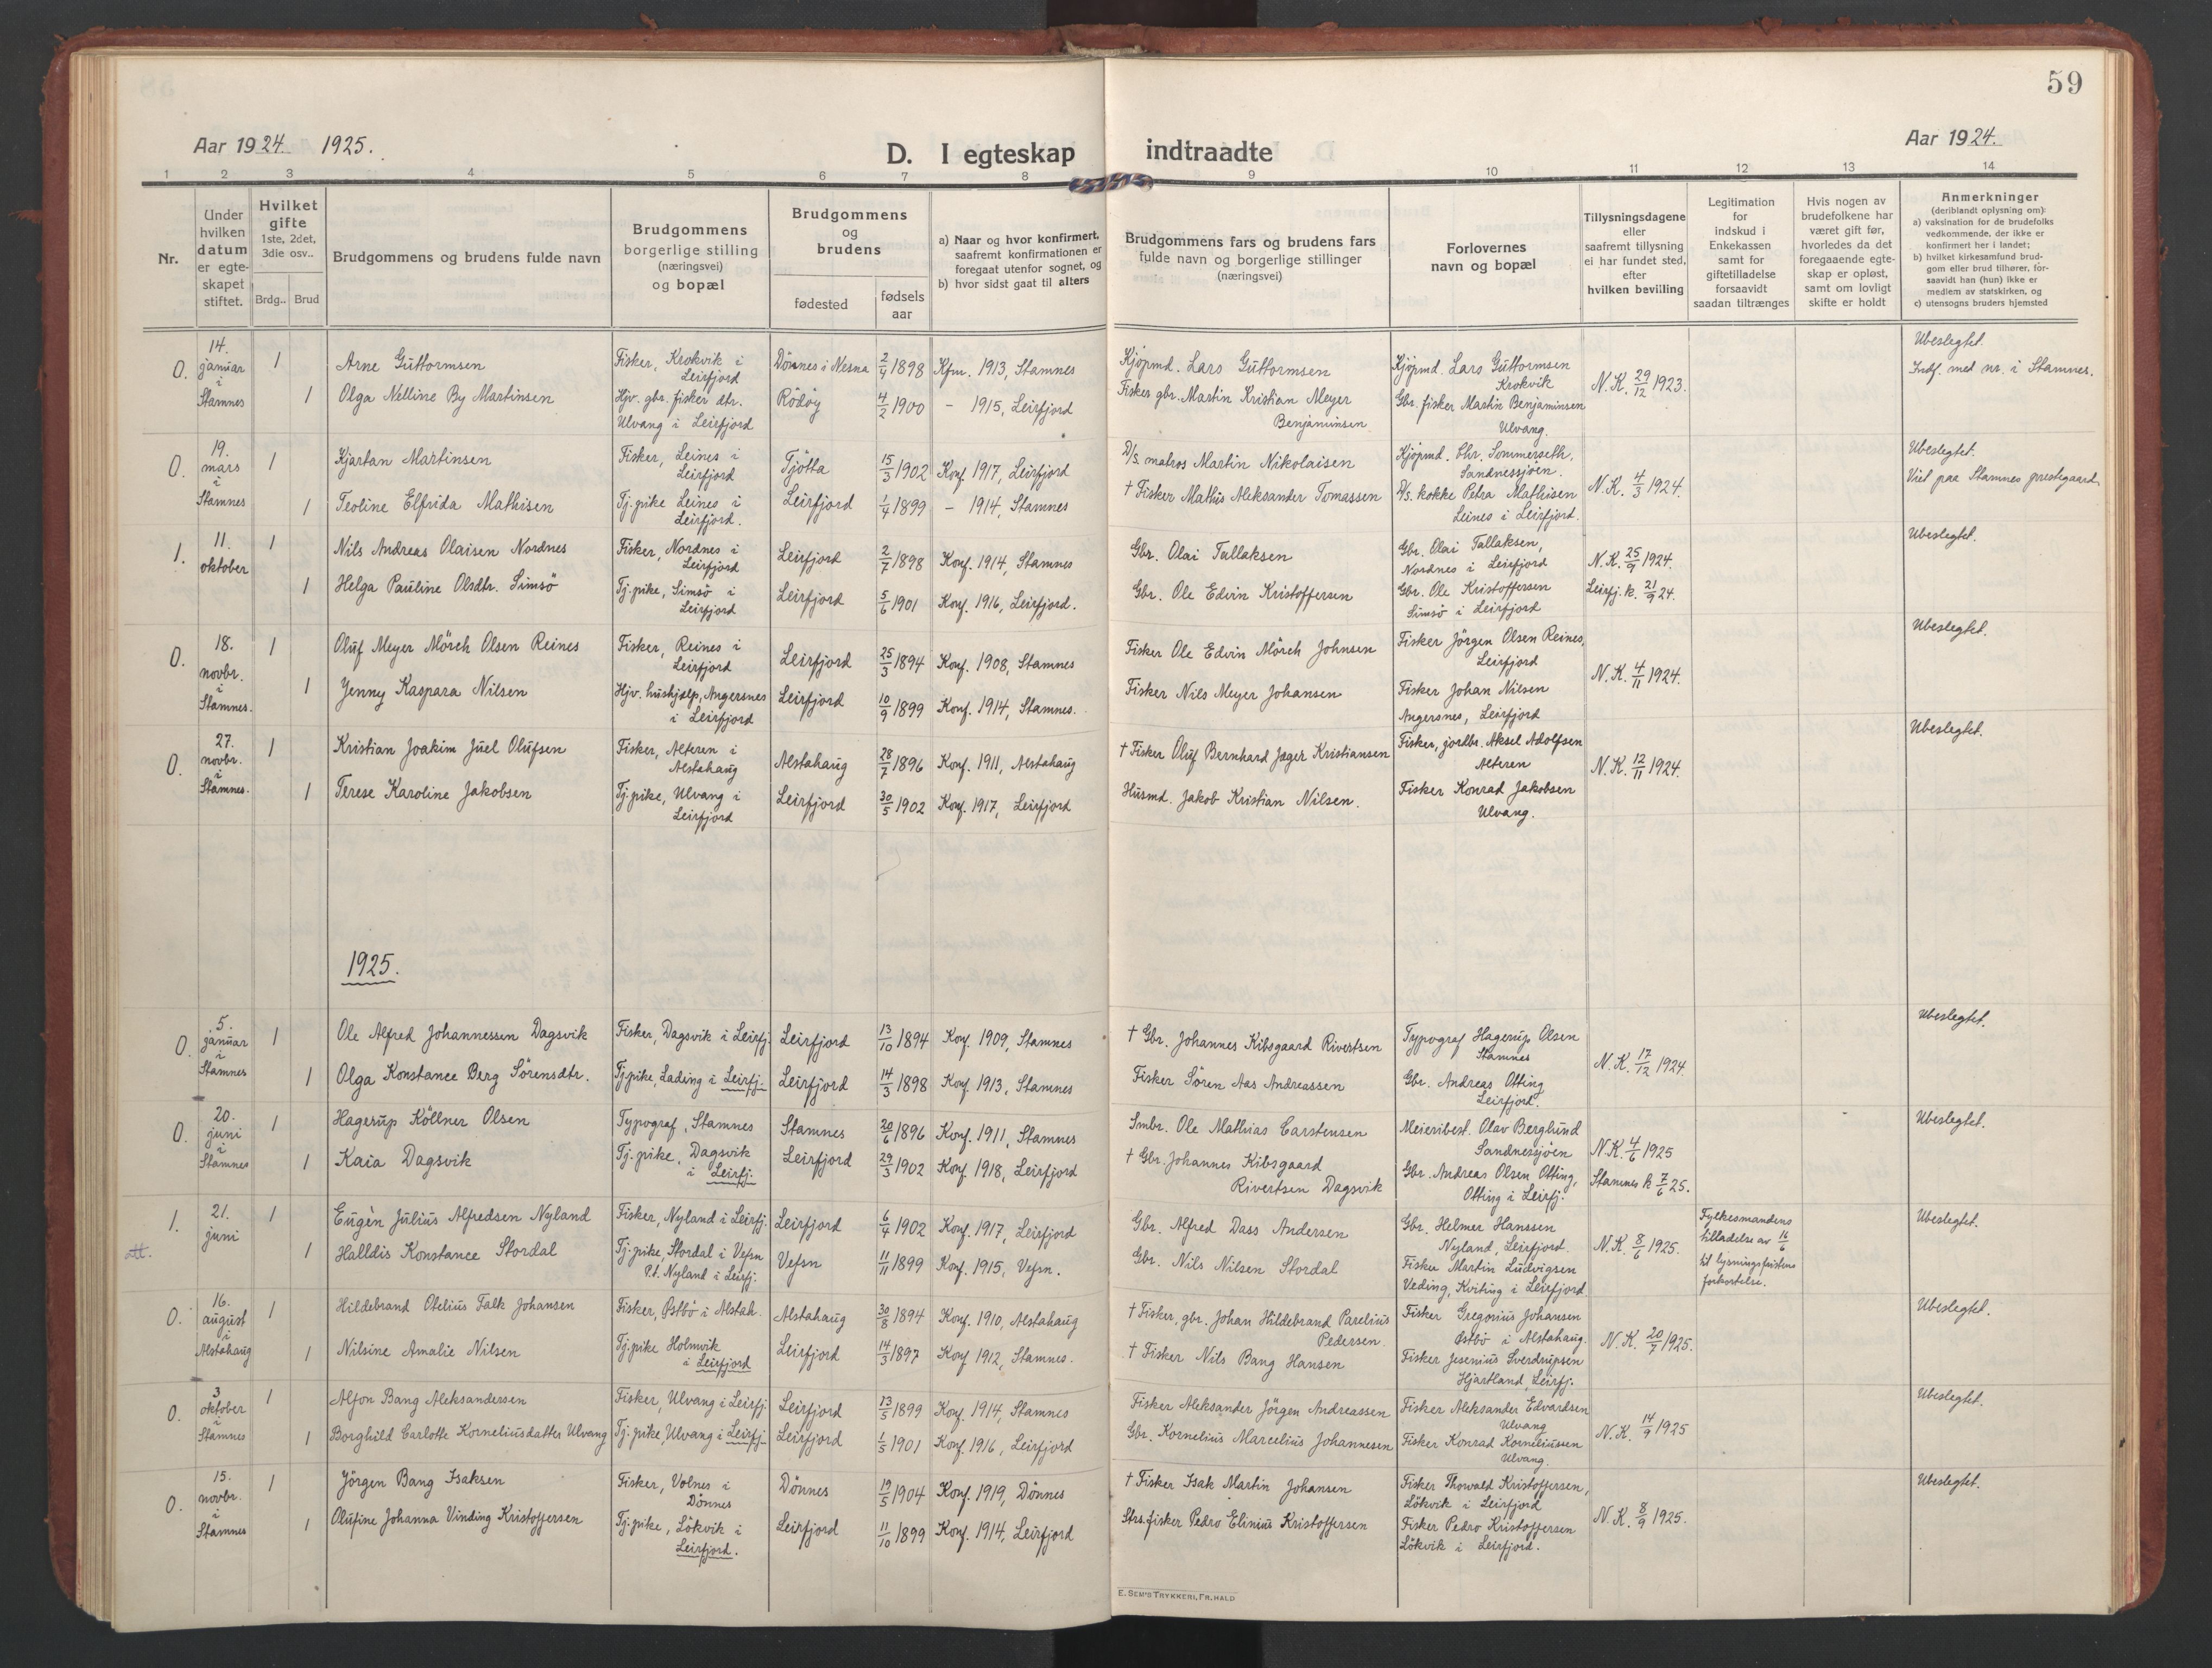 59
Aar 1924. 1925.
D. I egteskap indtraadte
Aar 1924.
1 2 3 4 5 6 7 8 9 10 11 12 13 14
Nr.
Under hvilken datum er egteskapet stiftet.
Hvilket gifte 1ste, 2det, 3die osv..
Brdg.. Brud
Brudgommens og brudens fulde navn
Brudgommens borgerlige stilling (næringsvei) og bopæl
Brudgommens og brudens
fødested
fødselsaar
a) Naar og hvor konfirmert, saafremt konfirmationen er foregaat utenfor sognet, og
b) hvor sidst gaat til alters
Brudgommens fars og brudens fars fulde navn og borgerlige stillinger (næringsvei)
Forlovernes navn og bopæl
Tillysningsdagene eller saafremt tillysning ei har fundet sted, efter hvilken bevilling
Legitimation for indskud i Enkekassen samt for giftetilladelse forsaavidt saadan tiltrænges
Hvis nogen av brudefolkene har været gift før, hvorledes da det foregaaende egteskap er opløst, samt om lovligt skifte er holdt
Anmerkninger (deriblandt oplysning om):
a) vaksination for de brudefolks vedkommende, der ikke er konfirmert her i landet;
b) hvilket kirkesamfund brudgom eller brud tilhører, forsaavidt han (hun) ikke er medlem av statskirken, og
c) utensogns bruders hjemsted
0. 14. januar i Stamnes
1 Arne Guttormsen Fisker, Krokvik i Leirfjord Dönnes i Nesna 2/4 1898 Kfm. 1913, Stamnes Kjøpmd. Lars Guttormsen Kjøpmd. Lars Guttormsen Krokvik N.K. 29/12 1923. Ubeslegtet. Indf. med nr. i Stamnes.
1 Olga Nelline By Martinsen Hjv. gbr. fisker dtr. Ulvang i Leirfjord Rödöy 4/2 1900 - 1915, Leirfjord Fisker gbr. Martin Kristian Meyer Benjaminsen Gbr. fisker Martin Benjaminsen Ulvang.
0. 19. mars i Stamnes
1 Kjartan Martinsen Fisker, Leines i Leirfjord Tjötta 15/3 1902 Konf. 1917, Leirfjord D/s matros Martin Nikolaisen Kjøpmd. Chr. Sommerseth, Sandnessjöen. N.K. 4/3 1924. Ubeslegtet. Viet paa Stamnes prestegaard.
1 Teoline Elfrida Mathisen Tj.pike Leines i Leirfjord. Leirfjord 1/4 1899 - 1914, Stamnes † Fisker Mathis Aleksander Tomassen D/s. kokke Petra Mathisen Leines i Leirfjord.
1. 11. oktober
1 Nils Andreas Olaisen Nordnes Fisker, Nordnes i Leirfjord Leirfjord 2/7 1898 Konf. 1914, Stamnes Gbr. Olai Tallaksen Gbr. Olai Tallaksen, Nordnes i Leirfjord N.K. 25/9 1924. Ubeslegtet.
1 Helga Pauline Olsdtr. Simsö Tj.pike, Simsö i Leirfjord Leirfjord 5/6 1901 Konf. 1916, Leirfjord. Gbr. Ole Edvin Kristoffersen Gbr. Ole Kristoffersen Simsö i Leirfjord Leirfj. k. 21/9 24.
0. 18. novbr. i Stamnes.
1 Oluf Meyer Mörch Olsen Reines Fisker, Reines i Leirfjord Leirfjord 25/3 1894 Konf. 1908, Stamnes Fisker Ole Edvin Mörch Johnsen Fisker Jörgen Olsen Reines, Leirfjord N.K. 4/11 1924. Ubeslegtet.
1 Jenny Kaspara Nilsen Hjv. hushjælp, Angersnes i Leirfjord Leirfjord 10/9 1899 Konf. 1914, Stamnes. Fisker Nils Meyer Johansen Fisker Johan Nilsen Angersnes, Leirfjord
0. 27. novbr. i Stamnes.
1 Kristian Joakim Juel Olufsen Fisker, Alteren i Alstahaug Alstahaug 28/7 1896 Konf. 1911, Alstahaug † Fisker Oluf Bernhard Jæger Kristiansen Fisker, jordbr. Aksel Adolfsen Alteren N.K. 12/11 1924. Ubeslegtet.
1 Terese Karoline Jakobsen Tj.pike, Ulvang i Leirfjord Leirfjord 30/5 1902 Konf. 1917, Leirfjord Husmd. Jakob Kristian Nilsen. Fisker Konrad Jakobsen Ulvang.
1925.
0. 5. januar i Stamnes
1 Ole Alfred Johannessen Dagsvik Fisker, Dagsvik i Leirfj. Leirfjord 13/10 1894 Konf. 1909, Stamnes † Gbr. Johannes Kibsgaard Rivertsen Typograf Hagerup Olsen Stamnes N.K. 17/12 1924. Ubeslegtet.
1 Olga Konstance Berg Sörensdtr. Tj.pike, Lading i Leirfj. Leirfjord 14/3 1898 Konf. 1913, Stamnes Fisker Sören Aas Andreassen Gbr. Andreas Otting Leirfjord.
0. 20. juni i Stamnes
1 Hagerup Köllner Olsen Typograf, Stamnes Stamnes 20/6 1896 Konf. 1911, Stamnes Smbr. Ole Mathias Carstensen Meieribest. Olav Berglund Sandnessjöen N.K. 4/6 1925 Ubeslegtet.
1 Kaia Dagsvik Tj.pike, Dagsvik i Leirfj. Leirfjord 29/3 1902 Konf. 1918, Leirfjord † Gbr. Johannes Kibsgaard Rivertsen Dagsvik Gbr. Andreas Olsen Otting, Otting i Leirfj. Stamnes k 7/6 25.
1. 21. juni
1 Eugèn Julius Alfredsen Nyland Fisker, Nyland i Leirfj. Leirfjord 6/4 1902 Konf. 1917, Leirfjord Gbr. Alfred Dass Andersen Gbr. Helmer Hanssen Nyland, Leirfjord. N.K. 8/6 1925. Fylkesmandens tilladelse av 16/6 til lysningsfristens forkortelse. Ubeslegtet.
1 Halldis Konstance Stordal Tj.pike, Stordal i Vefsn P.t. Nyland i Leirfj. Vefsn 11/11 1899 Konf. 1915, Vefsn. Gbr. Nils Nilsen Stordal Fisker Martin Ludvigsen Veding, Kviting i Leirfjord
0. 16. august i Alstahaug
1 Hildebrand Otelius Falk Johansen Fisker, Østbö i Alstah. Alstahaug 30/8 1894 Konf. 1910, Alstahaug † Fisker, gbr. Johan Hildebrand Parelius Pedersen Fisker Gregorius Johansen Østbö i Alstahaug. N.K. 20/7 1925. Ubeslegtet.
1 Nilsine Amalie Nilsen Tj.pike Holmvik i Leirfjord Leirfjord 14/3 1897 Konf 1912, Stamnes. † Fisker Nils Bang Hansen Fisker Jesenius Sverdrupsen Hjartland, Leirfj.
0. 3 oktober i Stamnes
1 Alfon Bang Aleksandersen Fisker, Ulvang i Leirfj Leirfjord 13/5 1899 Konf. 1914, Stamnes Fisker Aleksander Jörgen Andreassen Fisker Aleksander Edvardsen Ulvang N.K. 14/9 1925 Ubeslegtet.
1 Borghild Carlotte Korneliusdatter Ulvang Tj.pike, Ulvang i Leirfj. Leirfjord 1/5 1901 Konf. 1916, Leirfjord Gbr. Kornelius Marcelius Johannesen Fisker Konrad Korneliussen Ulvang.
0. 15. novbr. i Stamnes
1 Jörgen Bang Isaksen Fisker, Volnes i Dönnes Dönnes 19/5 1904 Konf. 1919, Dönnes † Fisker Isak Martin Johansen Fisker Thorvald Kristoffersen, Lökvik i Leirfjord N.K. 8/9 1925. Ubeslegtet.
1 Olufine Johanna Vinding Kristoffersen Tj.pike, Lökvik i Leirfjord. Leirfjord 11/10 1899 Konf. 1914, Leirfjord Strs. fisker Pedro Elinius Kristoffersen Fisker Pedro Kristoffersen Lökvik i Leirfjord.
E. SEM'S TRYKKERI, FR.HALD